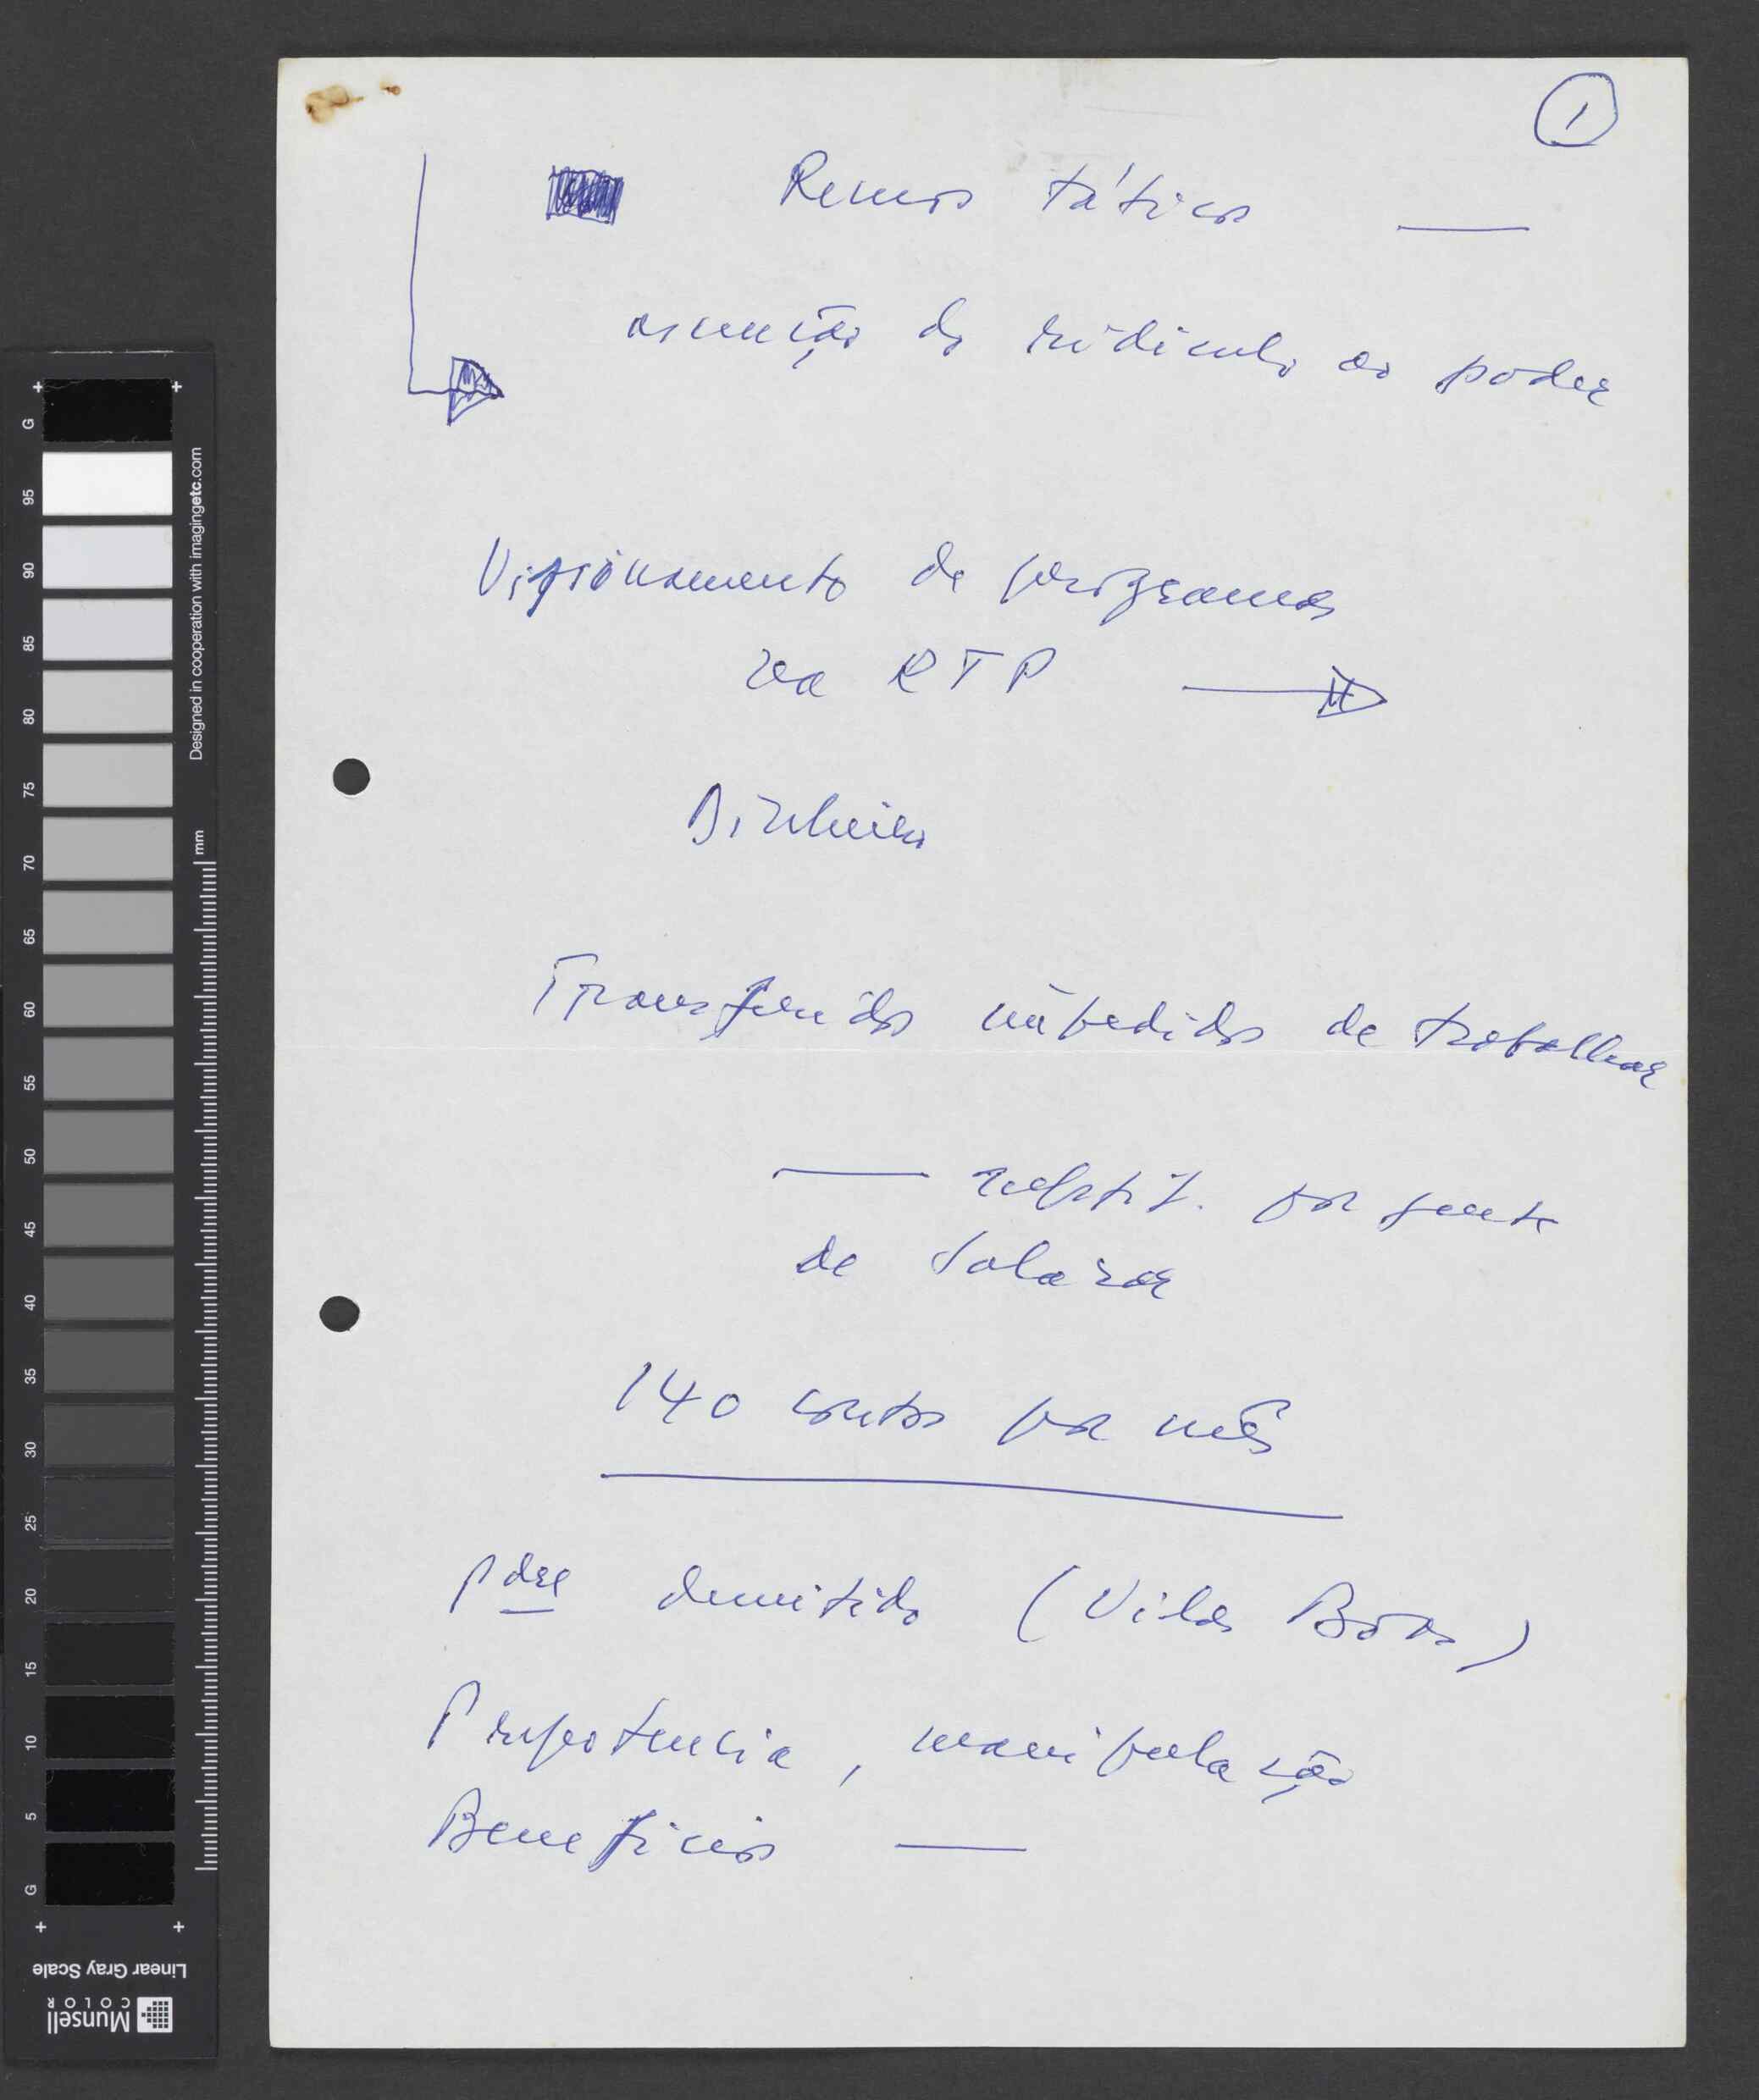 1
Recuos táticos —
ascenção do ridiculo ao poder
Visionamento de programas
na RTP
Dinheiro
Transferidos impedidos de trabalhar
— substit. por gente
de Salazar
140 contos por mês
pdre demitido (Vilas Boas)
Prepotencia, manipulação
Beneficios —
G
95
90
85
80
75
70
65
60
55
50
45
40
35
30
25
20
15
10
5
G
Designed in cooperation with imagingetc.com
mm
Linear Gray Scale
Munsell
COLOR